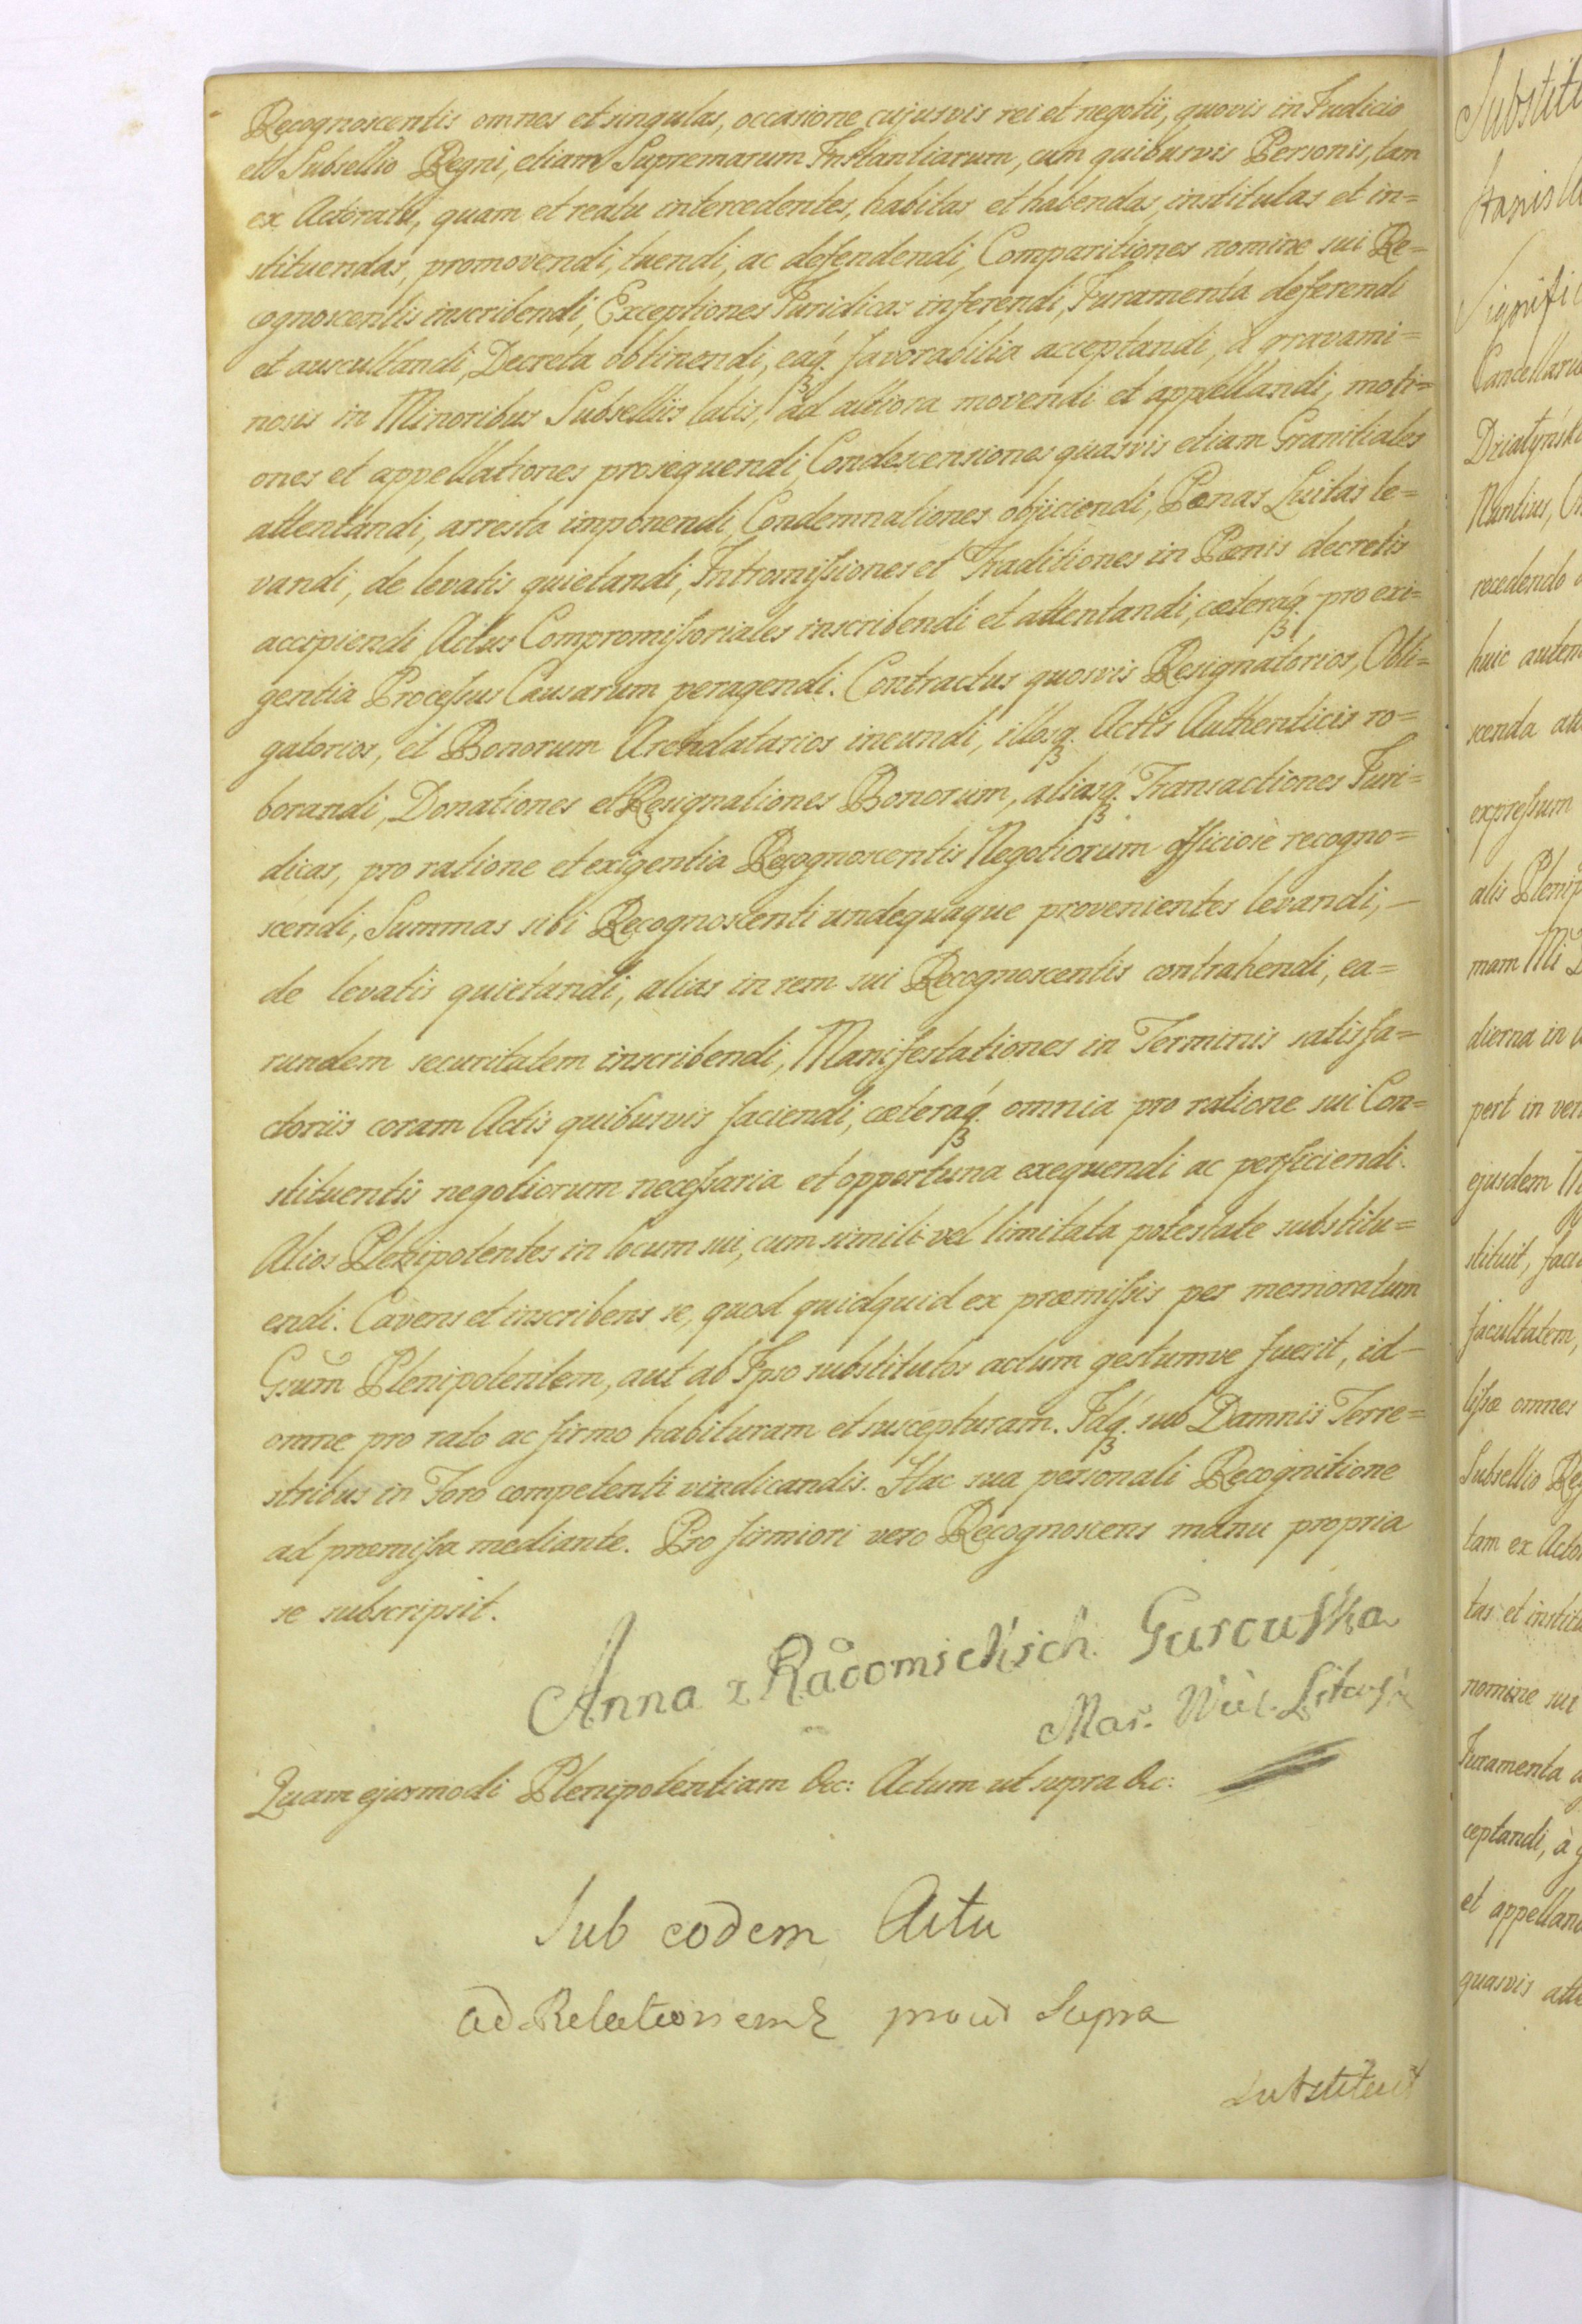 Recognoscentis omnes et singulas, occasione cujusvis rei et negotii, quovis in Judicio
et Subsellio Regni, etiam Supremarum Instantiarum, cum quibusvis Personis, tam
ex Actoratu, quam et reatu intercedentes, habitas et habendas, institutas et in=
stituendas, promovendi, tuendi, ac defendendi, Comparitiones nomine sui Re=
cognoscentis inscribendi, Exceptiones Juridicas inferendi, Juramenta deferendi
et auscultandi, Decreta obtinendi, eaq. favorabilia acceptandi, à gravami=
nosis in Minoribus Subselliis latis, ad altiora movendi et appellandi, moti=
ones et appellationes prosequendi, Condescensiones quasvis etiam Granitiales
attentandi, arresta imponendi, Condemnationes objiciendi, Pœnas Luitas le=
vandi, de levatis quietandi, Intromissiones et Traditiones in Pœnis decretis
accipiendi Actus Compromissoriales inscribendi et attentandi, cæteraq. pro exi=
gentia Processus Causarum peragendi. Contractus quosvis Resignatorios, Obli=
gatorios, et Bonorum Arendatarios ineundi, illosq. Actis Authenticis ro=
borandi, Donationes et Resignationes Bonorum, aliasq. Transactiones Juri=
dicas, pro ratione et exigentia Recognoscentis Negotiorum officiosè recogno=
scendi, Summas sibi Recognoscenti undequaque provenientes levandi, –
de levatis quietandi, alias in rem sui Recognoscentis contrahendi, ea=
rundem securitatem inscribendi, Manifestationes in Terminis satisfa=
ctoriis coram Actis quibusvis faciendi, cæteraq. omnia pro ratione sui Con=
stituentis negotiorum necessaria et opportuna exequendi ac perficiendi.
Alios Plenipotentes in locum sui, cum simili vel limitata potestate substitu=
endi. Cavens et inscribens se, quod quidquid ex præmissis per memoratum
Gsum Plenipotentem, aut ab Ipso substitutos actum gestumve fuerit, id –
omne pro rato ac firmo habituram et suscepturam. Idq. sub Damnis Terre=
stribus in Foro competenti vindicandis. Hac sua personali Recognitione
ad præmissa mediante. Pro firmiori vero Recognoscens manu propria
se subscripsit.
Anna z Radomickich Gurowska
Mar. Wiel. Litewsk
Quam ejusmodi Plenipotentiam &c: Actum ut supra &c:
Sub eodem Actu
ad Relationem prout Supra
Substituit
Substit
Signific
Cancellariu
Działyńsk
Nuntius,
recedendo
huic autem
scenda
expressum
alis Plenip
mam
dierna in
pert in
ejusdem
stituit, facu
facultatem,
omnes
Subsellio Reg
tam ex Acto
tas et institu
nomine sui
Juramenta
ceptandi, à g
et appellan
quasvis atte